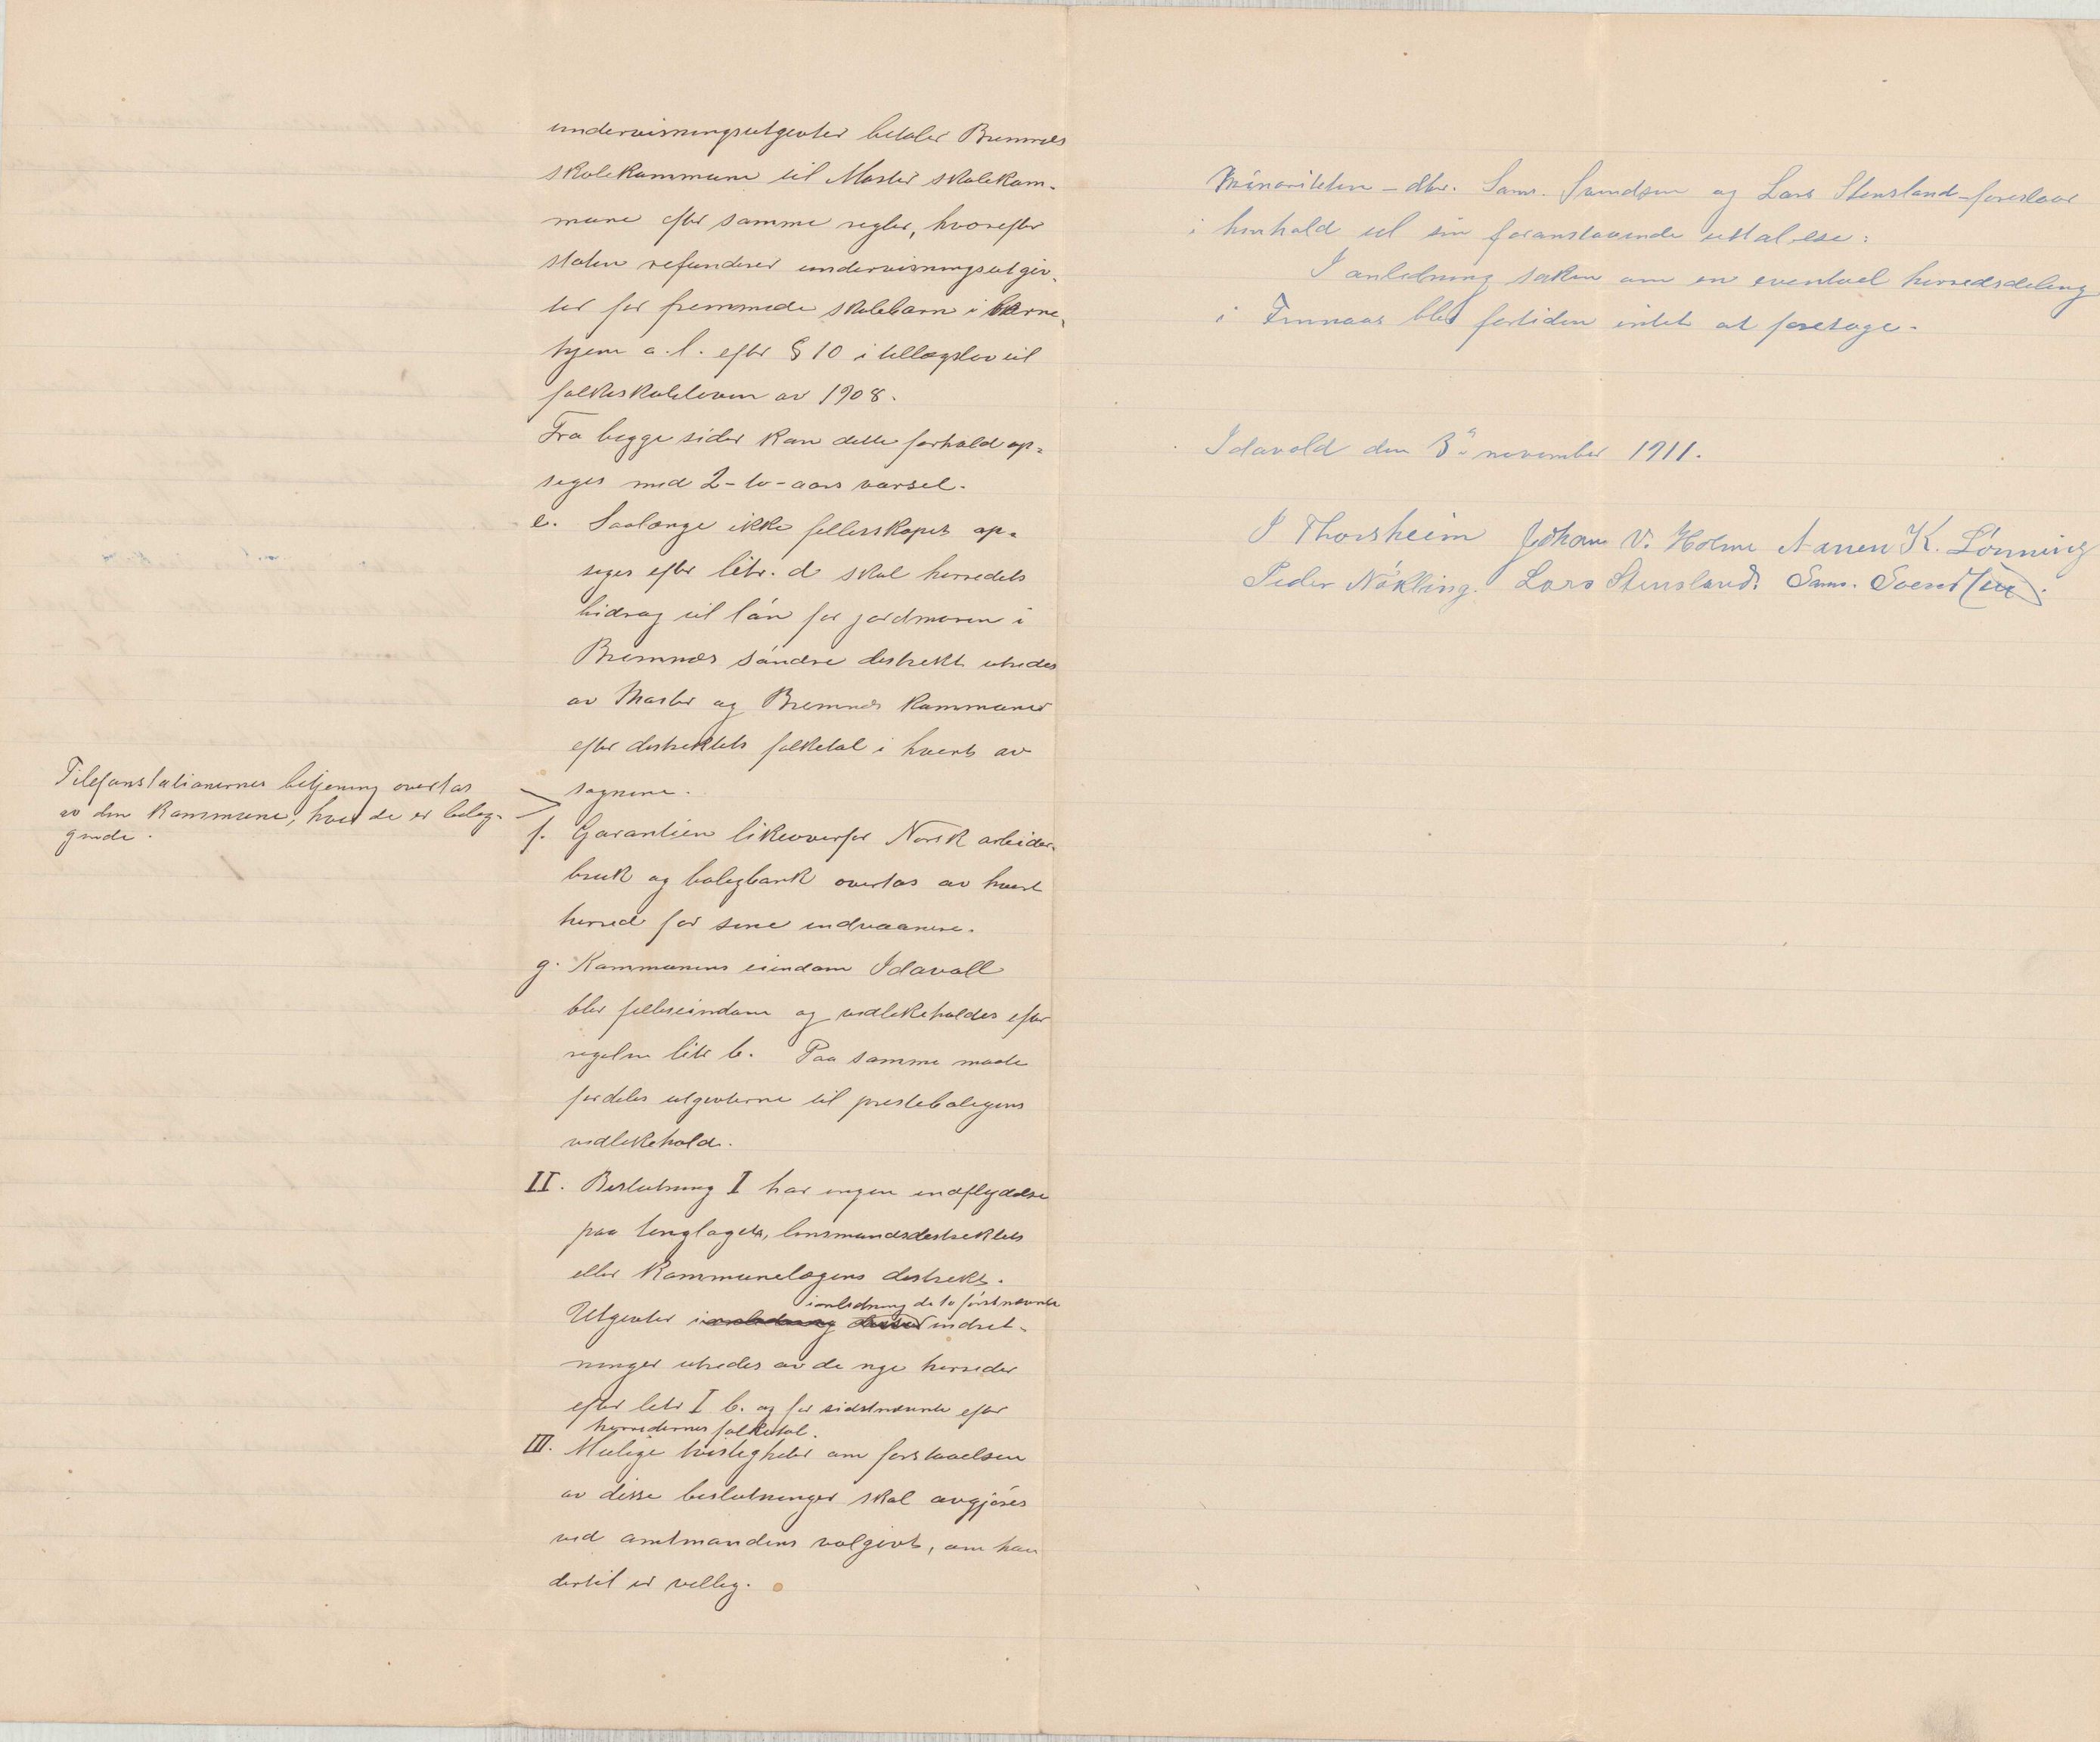 undervisningsutgivter betaler Bremnes
skolekommune til Moster skolekom-
mune efter samme regler, hvorefter
staten refunderer undervisningsutgiv-
ter for fremmede skolebarn i barne-
hjem o.l. efter § 10 i tillægslov til
folkeskoleloven av 1908.
Fra begge sider kan dette forhold op-
siges med 2-to-aars varsel.
e. Saalænge ikke fellesskapet op-
siges efter litr. d skal herredets
bidrag til løn for jordmoren i
Bremnes søndre distrikt utredes
av Moster og Bremnes kommuner
efter distriktets folketal i hvert av
sognene.
Telefonstationernes betjening overtas
av den kommune, hvor de er belig-
gende.
f. Garantien likeoverfor Norsk arbeider-
bruk og boligbank overtas av hvert
herred for sine indvaanere.
g. Kommunens eiendom Idavoll
blir felleseiendom og vedlikeholdes efter
regelen litr b. Paa samme maate
fordeles utgivterne til prestebolegens
vedlikehold.
II. Beslutning I har ingen indflydelse
paa tinglagets, lensmandsdistriktets
eller kommunelægens distrikt.
ianledning de to førstnævnte
Utgivter ianledning disse indret-
ninger utredes av de nye herreder
efter litr I b. og for sidstnævnte efter
herredernes folketal.
III. Mulige tvistigheter om forstaaelsen
av disse beslutninger skal avgjøres
ved amtmandens volgivt, om han
dertil er villig.
Minoriteten - dhr. Sams. Svendsen og Lars Stensland - foreslaar
i henhold til sin foranstaaende uttalelse:
I anledning saken om en eventuel herredsdeling
i Finnaas blir fortiden intet at foretage.
Idavold den 3. november 1911.
I Thorsheim Johan V. Holme Aanen K. Lønning
Peder Nökling. Lars Stensland. Sams. Svendsen.